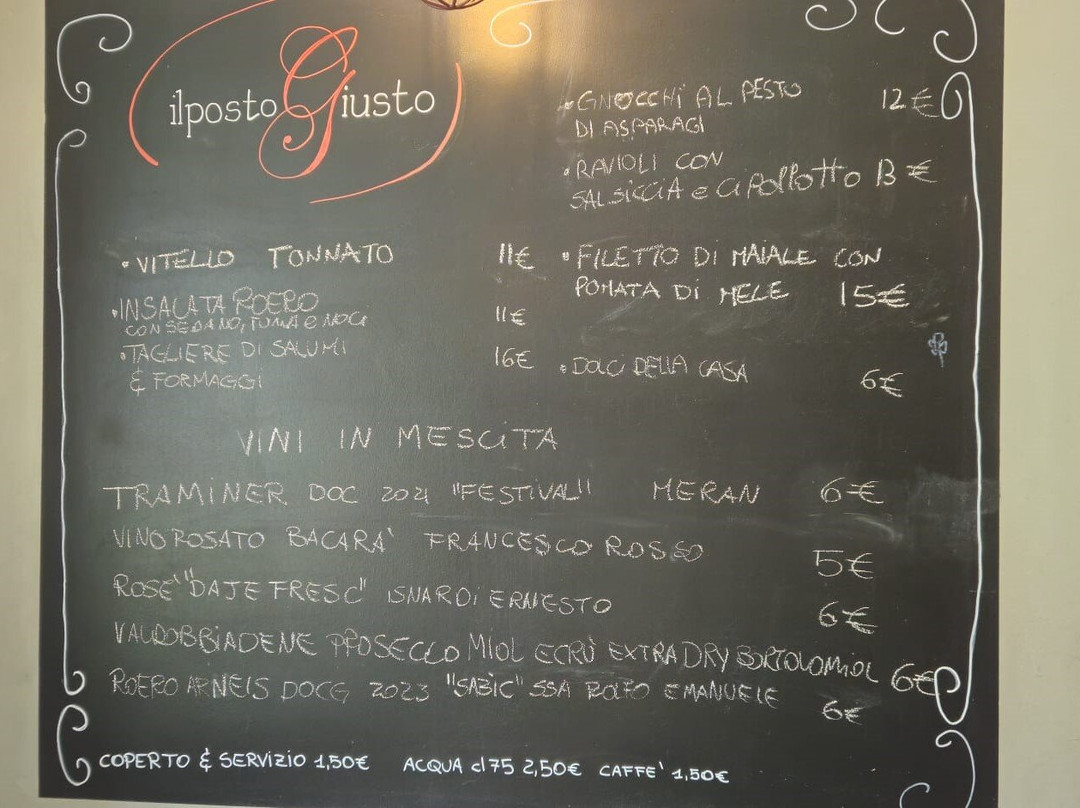 ilposto Giusto
• GNOCCHI AL PESTO 12 €
DI ASPARAGI
• RAVIOLI CON
SALSICCIA e CIPOLLOTTO 13 €
• VITELLO TONNATO 11€
• INSALATA ROERO
CON SEDANO, TUMA e NOCI 11€
• TAGLIERE DI SALUMI 16€
& FORMAGGI
• FILETTO DI MAIALE CON
POMATA DI MELE 15€
• DOLCI DELLA CASA 6€
VINI IN MESCITA
TRAMINER DOC 2021 "FESTIVAL" MERAN 6€
VINO ROSATO BACARA' FRANCESCO ROSSO 5€
ROSE' "DAJE FRESC" ISNARDI ERNESTO 6€
VALDOBBIADENE PROSECCO MIOL ECRÙ EXTRA DRY BORTOLOMIOL 6€
ROERO ARNEIS DOCG 2023 "SABIC" SSA ROLFO EMANUELE 6€
COPERTO & SERVIZIO 1,50€ ACQUA cl 75 2,50€ CAFFE' 1,50€